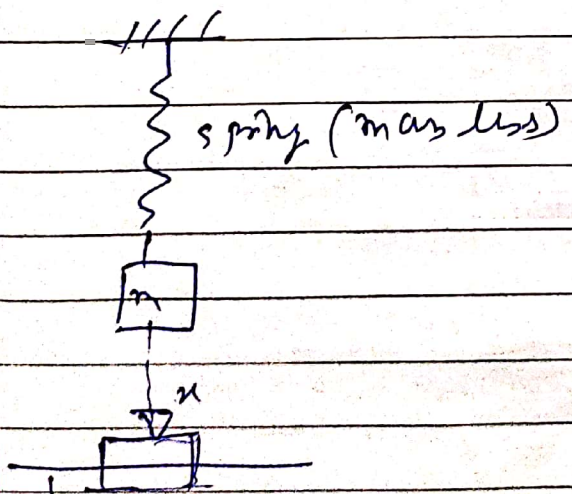 spring (mass less)
m
x